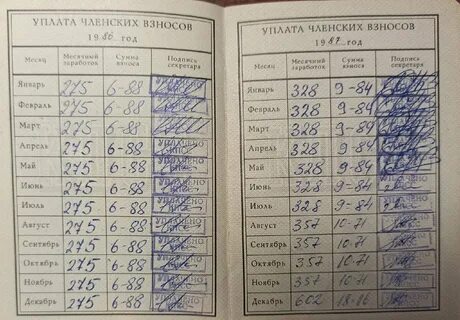 УПЛАТА ЧЛЕНСКИХ ВЗНОСОВ
1986 год
Месяц Месячный заработок Сумма взноса Подпись секретаря
Январь 275 6-88
Февраль 275 6-88
Март 275 6-88
Апрель 275 6-88 УПЛАЧЕНО
Май 275 6-88
Июнь 275 6-88 УПЛАЧЕНО
Июль 275 6-88
Август 275 6-88 УПЛАЧЕНО
Сентябрь 275 6-88
Октябрь 275 6-88 УПЛАЧЕНО
Ноябрь 275 6-88
Декабрь 275 6-88 УПЛАЧЕНО
УПЛАТА ЧЛЕНСКИХ ВЗНОСОВ
1987 год
Месяц Месячный заработок Сумма взноса Подпись секретаря
Январь 328 9-84
Февраль 328 9-84
Март 328 9-84
Апрель 328 9-84
Май 328 9-84
Июнь 328 9-84 УПЛАЧЕНО
Июль 328 9-84
Август 357 10-71 УПЛАЧЕНО
Сентябрь 357 10-71
Октябрь 357 10-71 УПЛАЧЕНО
Ноябрь 357 10-71
Декабрь 602 18-06 УПЛАЧЕНО